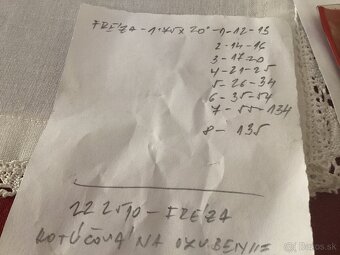 FRÉZA-1.75X20°-1-12-13
2-14-16
3-17-20
4-21-25
5-26-34
6-35-54
7-55-134
8-135
222510-FRÉZA
KOTÚČOVÁ NA OZUBENIE
Bazos.sk